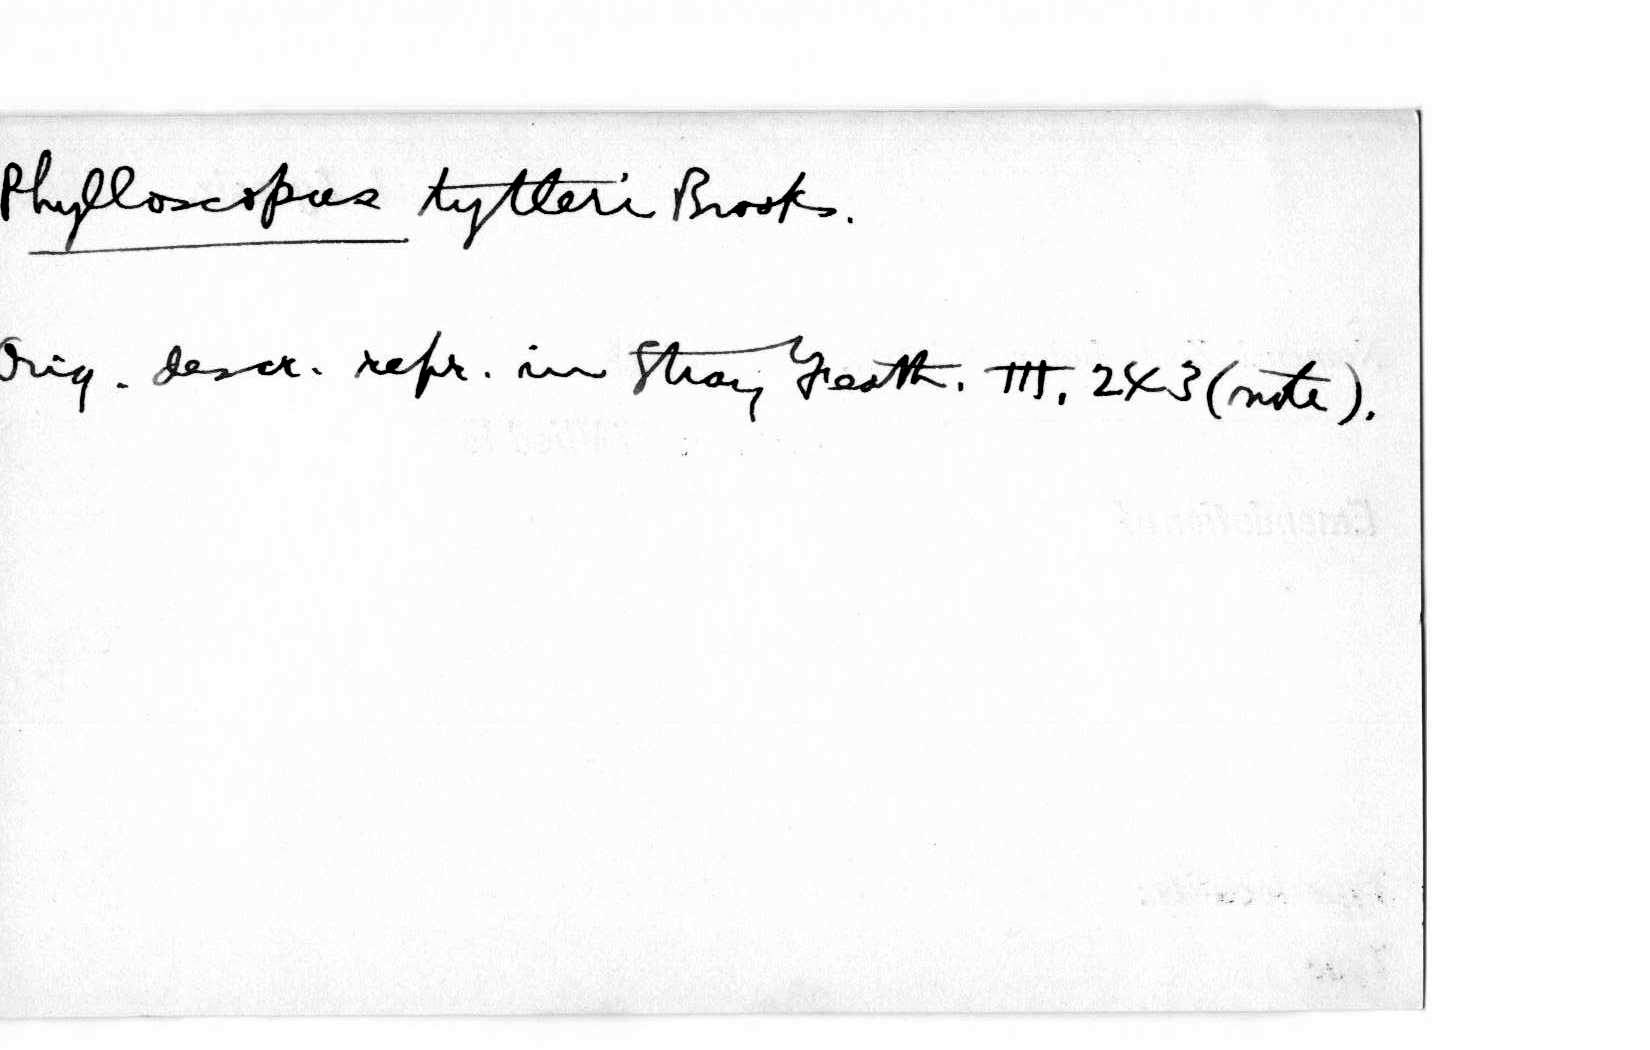 Phylloscopus tytleri Brooks.
Orig. descr. repr. in Stray Feath. III. 243 (note).